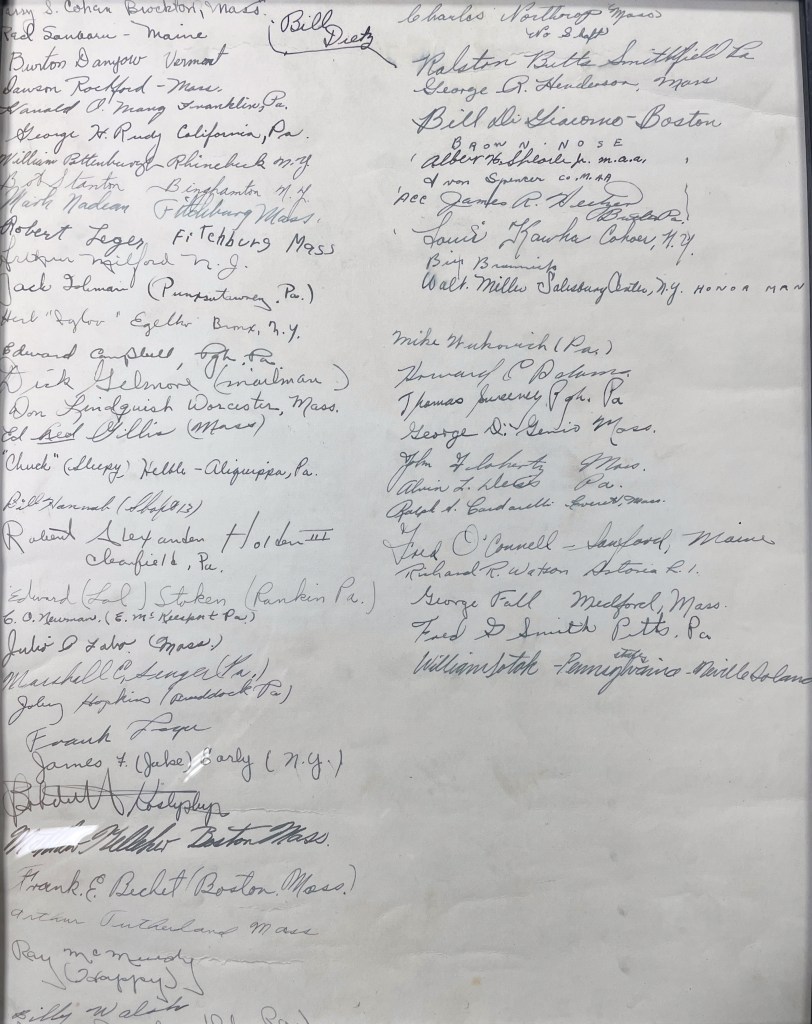 S. Cohen Brockton, Mass.
Red Maine
Burton Danyow Vermont
Dawson Rockford - Mass.
Harold O. Mang Franklin, Pa.
George H. Rudy California, Pa.
William Pottenburgh Rhinebeck N.Y
Bob Stanton - Binghamton N.Y.
Mark Nadeau Fitchburg Mass.
Robert Leger Fitchburg Mass
Arthur Milford N.J.
Jack (Punxsutawney, Pa.)
Herb Bronx, N.Y.
Edward Campbell, Pgh. Pa
Dick Gelmore (mailman)
Don Lindquist Worcester, Mass.
Ed Red Gillis (Mass)
"Chuck" (Sleepy) - Aliquippa, Pa.
Bill Hannah (Shop #13)
Robert Alexander Holden III
Clearfield, Pa.
Edward (Lal) Stoken (Rankin Pa.)
C. O. Newman. (E. McKeesport Pa.)
Julio Labo (Mass.)
Marshall E. Singer (Pa.)
Hopkins (Braddock Pa)
Frank
James F. (Jake) Early (N.Y.)
Kelleher Boston Mass.
Frank. E. Bechet (Boston. Mass.)
Arthur Sutherland Mass
Ray McMurdy
(Happy)
Billy Walsh
Bill
Dietz
Charles Northrop Mass
Ralston Butts Smithfield Pa
George R. Henderson, Mass
Bill Di Giacomo - Boston
BROWN. NOSE
Albert Jr. M.A.A.
Spencer Co. M.AA
Acc James R.
Butler Pa.
Louis Kawka Cohoes, N.Y.
Walt. Miller Salisbury Center, N.Y. HONOR MAN
Mike Wukovich (Pa.)
Howard E
Thomas Sweeney Pgh. Pa
George Di Genio Mass.
John Flaherty Mass.
Alvin L. Pa.
Ralph A. Cardarelli Everett, Mass.
Fred O'Connell - Sanford, Maine
Richard R. Watson Astoria L.I.
George Fall Medford, Mass.
Fred G Smith Pitts. Pa
William - Pennsylvania - Neville Island